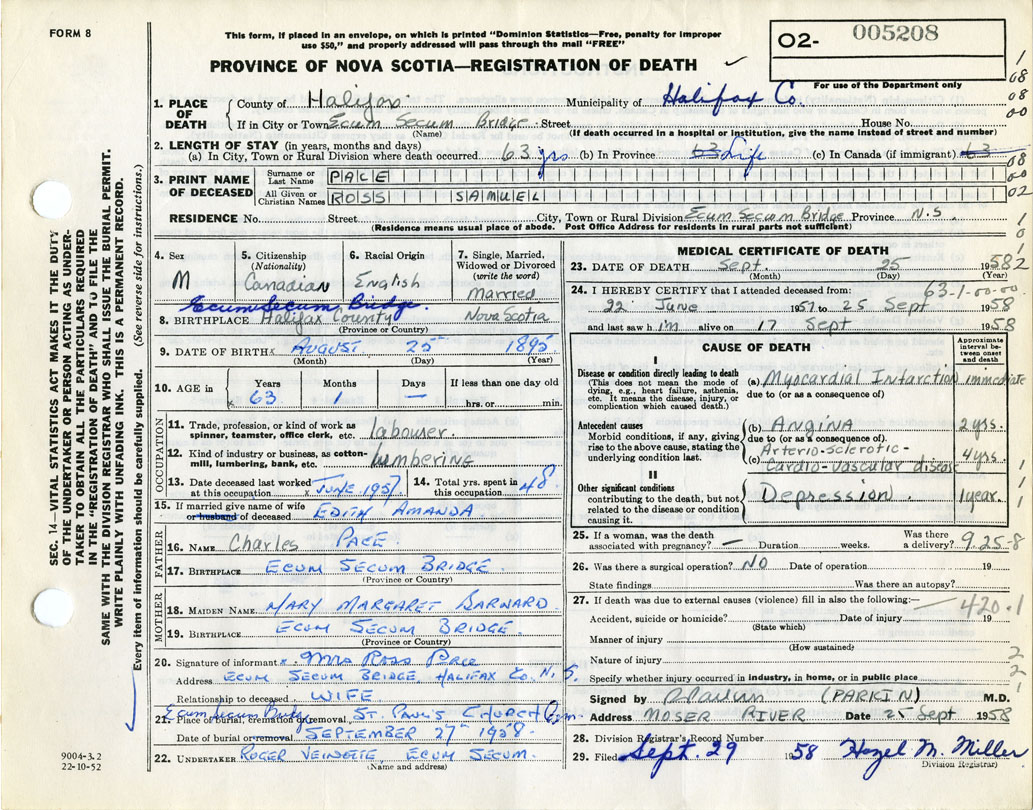 FORM 8
This form, if placed in an envelope, on which is printed "Dominion Statistics—Free, penalty for improper
use $50," and properly addressed will pass through the mail "FREE"
O2- 005208
For use of the Department only
PROVINCE OF NOVA SCOTIA—REGISTRATION OF DEATH
SEC. 14—VITAL STATISTICS ACT MAKES IT THE DUTY
OF THE UNDERTAKER OR PERSON ACTING AS UNDER-
TAKER TO OBTAIN ALL THE PARTICULARS REQUIRED
IN THE "REGISTRATION OF DEATH" AND TO FILE THE
SAME WITH THE DIVISION REGISTRAR WHO SHALL ISSUE THE BURIAL PERMIT.
WRITE PLAINLY WITH UNFADING INK. THIS IS A PERMANENT RECORD.
Every item of information should be carefully supplied. (See reverse side for instructions.)
1. PLACE OF DEATH
County of Halifax Municipality of Halifax Co.
If in City or Town Ecum Secum Bridge Street House No.
(Name) (If death occurred in a hospital or institution, give the name instead of street and number)
2. LENGTH OF STAY (in years, months and days)
(a) In City, Town or Rural Division where death occurred 63 yrs (b) In Province 63 Life (c) In Canada (if immigrant) 63
3. PRINT NAME OF DECEASED
Surname or Last Name PACE
All Given or Christian Names ROSS SAMUEL
RESIDENCE No. Street City, Town or Rural Division Ecum Secum Bridge Province N.S.
(Residence means usual place of abode. Post Office Address for residents in rural parts not sufficient)
1
08
08
00
08
00
02
1
0
1
4. Sex
M
5. Citizenship
(Nationality)
Canadian
6. Racial Origin
English
7. Single, Married,
Widowed or Divorced
(write the word)
married
Ecum Secum, Bridge.
8. BIRTHPLACE Halifax County Nova Scotia
(Province or Country)
9. DATE OF BIRTH x AUGUST 25th 1895
(Month) (Day) (Year)
10. AGE in
Years Months Days If less than one day old
x 63 1 — hrs. or min.
OCCUPATION
11. Trade, profession, or kind of work as
spinner, teamster, office clerk, etc. labouser.
12. Kind of industry or business, as cotton-
mill, lumbering, bank, etc. lumbering
13. Date deceased last worked
at this occupation x JUNE 1957
14. Total yrs. spent in
this occupation 48
15. If married give name of wife
or husband of deceased EDITH AMANDA
FATHER
16. NAME Charles PACE
17. BIRTHPLACE ECUM SECUM BRIDGE
(Province or Country)
MOTHER
18. MAIDEN NAME MARY MARGARET BARNARD
19. BIRTHPLACE ECUM SECUM BRIDGE.
(Province or Country)
20. Signature of informant x Mrs Ross Pace
Address ECUM SECUM BRIDGE, HALIFAX CO. N.S.
Relationship to deceased WIFE
Ecum Secum Bridge
21. Place of burial, cremation or removal, ST. PAUL'S CHURCH Cem.
Date of burial or removal SEPTEMBER 27th 1958
22. UNDERTAKER ROGER ECUM SECUM.
(Name and address)
9004-3.2
22-10-52
MEDICAL CERTIFICATE OF DEATH
23. DATE OF DEATH Sept. 25 1958 2
(Month) (Day) (Year)
24. I HEREBY CERTIFY that I attended deceased from: 63-1-00-00
22 June 1957 to 25 Sept 1958
and last saw him alive on 17 Sept 1958
CAUSE OF DEATH
Approximate interval between onset and death
I
Disease or condition directly leading to death
(This does not mean the mode of
dying, e.g., heart failure, asthenia,
etc. It means the disease, injury, or
complication which caused death.)
(a) Myocardial Infarction immediate
due to (or as a consequence of)
Antecedent causes
Morbid conditions, if any, giving
rise to the above cause, stating the
underlying condition last.
(b) ANGINA 2 yrs.
due to (or as a consequence of).
(c) Arterio-sclerotic-
cardio-vascular disease 4 yrs.
II
Other significant conditions
contributing to the death, but not
related to the disease or condition
causing it.
Depression. 1 year.
1
1
1
25. If a woman, was the death
associated with pregnancy? — Duration weeks. Was there
a delivery? 9.25-8
26. Was there a surgical operation? NO Date of operation 19
State findings Was there an autopsy?
27. If death was due to external causes (violence) fill in also the following:— 420.1
Accident, suicide or homicide? Date of injury 19
(State which)
Manner of injury
(How sustained)
Nature of injury
2
2
1
Specify whether injury occurred in industry, in home, or in public place
Signed by (PARKIN) M.D.
Address MOSER RIVER Date 25 Sept 1958
28. Division Registrar's Record Number
29. Filed Sept. 29 1958 Hazel M. Miller
Division Registrar)